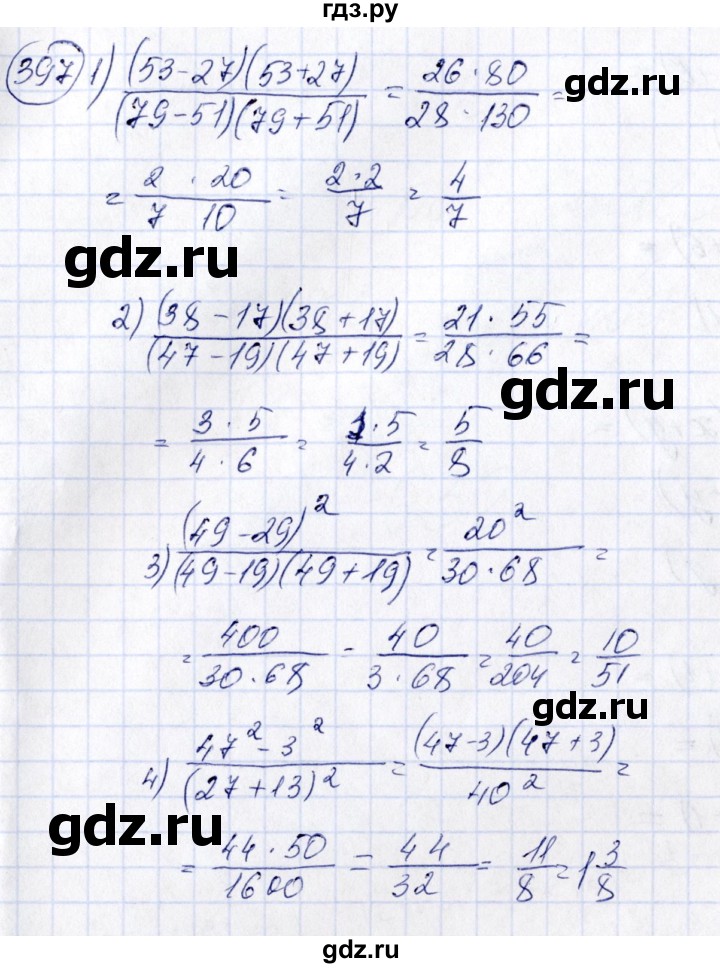 гдз.ру
397 1) (53-27)(53+27) / (79-51)(79+51) = 26·80 / 28·130 =
= 2·20 / 7 10 = 2·2 / 7 = 4/7
gdz.ru
2) (38-17)(38+17) / (47-19)(47+19) = 21·55 / 28·66 =
gdz.ru
= 3·5 / 4·6 = 1·5 / 4·2 = 5/8
3) (49-29)² / (49-19)(49+19) = 20² / 30·68 =
= 400 / 30·68 - 40 / 3·68 = 40/204 = 10/51
gdz.ru
4) 47²-3² / (27+13)² = (47-3)(47+3) / 40² =
gdz.ru
= 44·50 / 1600 = 44/32 = 11/8 = 1 3/8
gdz.ru